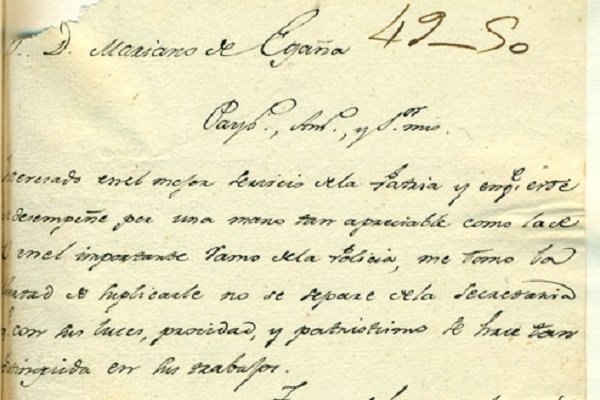 D. Mariano de Egaña 49-50
Payso., Amo., y Sor. mio.
Interesado en el mejor servicio de la Patria y en qe. este
se desempeñe por una mano tan apreciable como la de
en el importante ramo de la Policia, me tomo la
libertad de suplicarle no se separe de la Secretaria
qe. con sus luces, providad, y patriotismo se hace tan
distinguida en sus trabajos.